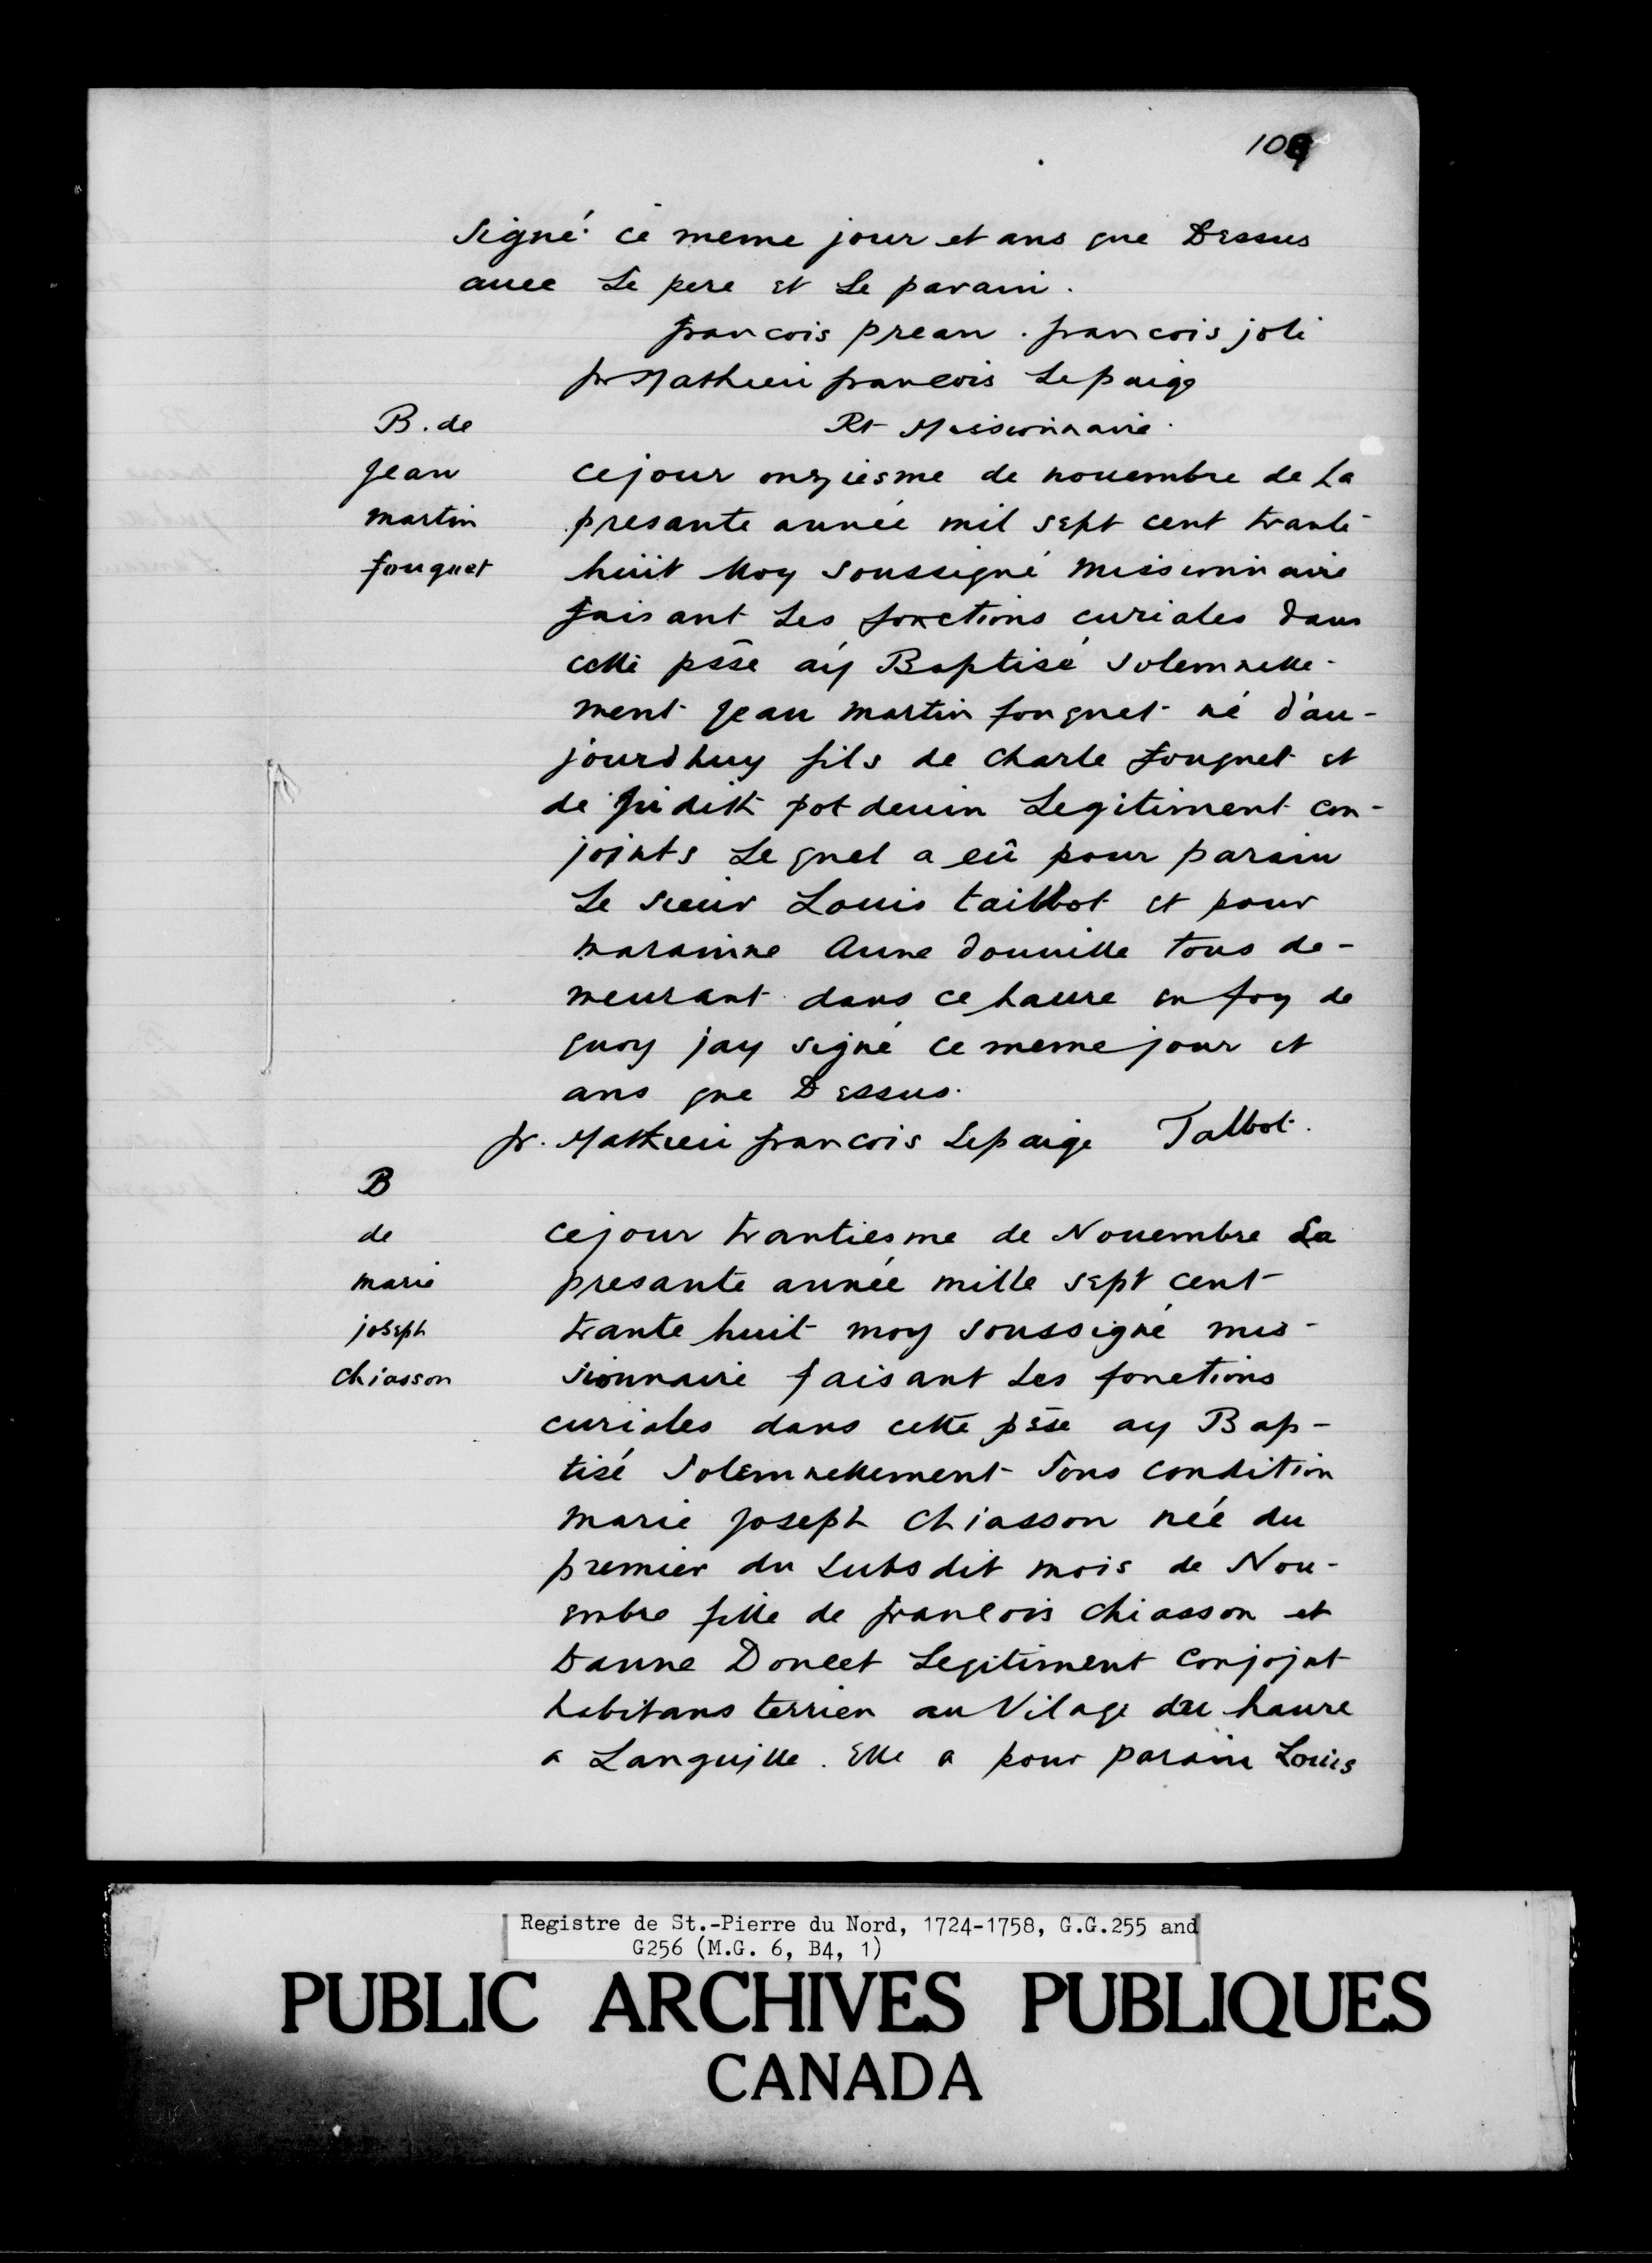 109
signé ce meme jour et ans que Dessus
auec Le pere et Le parain.
francois prean. francois joli
fr Mathieu francois Lepaige
Rt Missionnaire.
B. de
Jean
martin
fouquet
ce jour onziesme de nouembre de La
presante année mil sept cent trante
huit Moy soussigné missionnaire
faisant Les fonctions curiales dans
cette psse ay Baptisé solemnelle-
ment Jean martin fouquet né d'au-
jourdhuy fils de charle fouquet et
de Judith potdeuin Legitiment con-
joints Lequel a eû pour parain
Le sieur Louis taillbot et pour
marainne Anne douuille tous de-
meurant dans ce haure en foy de
quoy jay signé ce meme jour et
ans que Dessus.
fr. Mathieu francois Lepaige Talbot.
B
de
marie
joseph
chiasson
ce jour trantiesme de Nouembre La
presante année mille sept cent
trante huit moy soussigné mis-
sionnaire faisant Les fonctions
curiales dans cette psse ay Bap-
tisé Solemnellement Sous condition
Marie Joseph chiasson née du
premier du subsdit mois de Nou-
embre fille de francois chiasson et
Danne Doucet Legitiment conjojnt
habitans terrien au Vilage du haure
a Languille. Elle a pour parain Louis
Registre de St.-Pierre du Nord, 1724-1758, G.G.255 and
G256 (M.G. 6, B4, 1)
PUBLIC ARCHIVES PUBLIQUES
CANADA